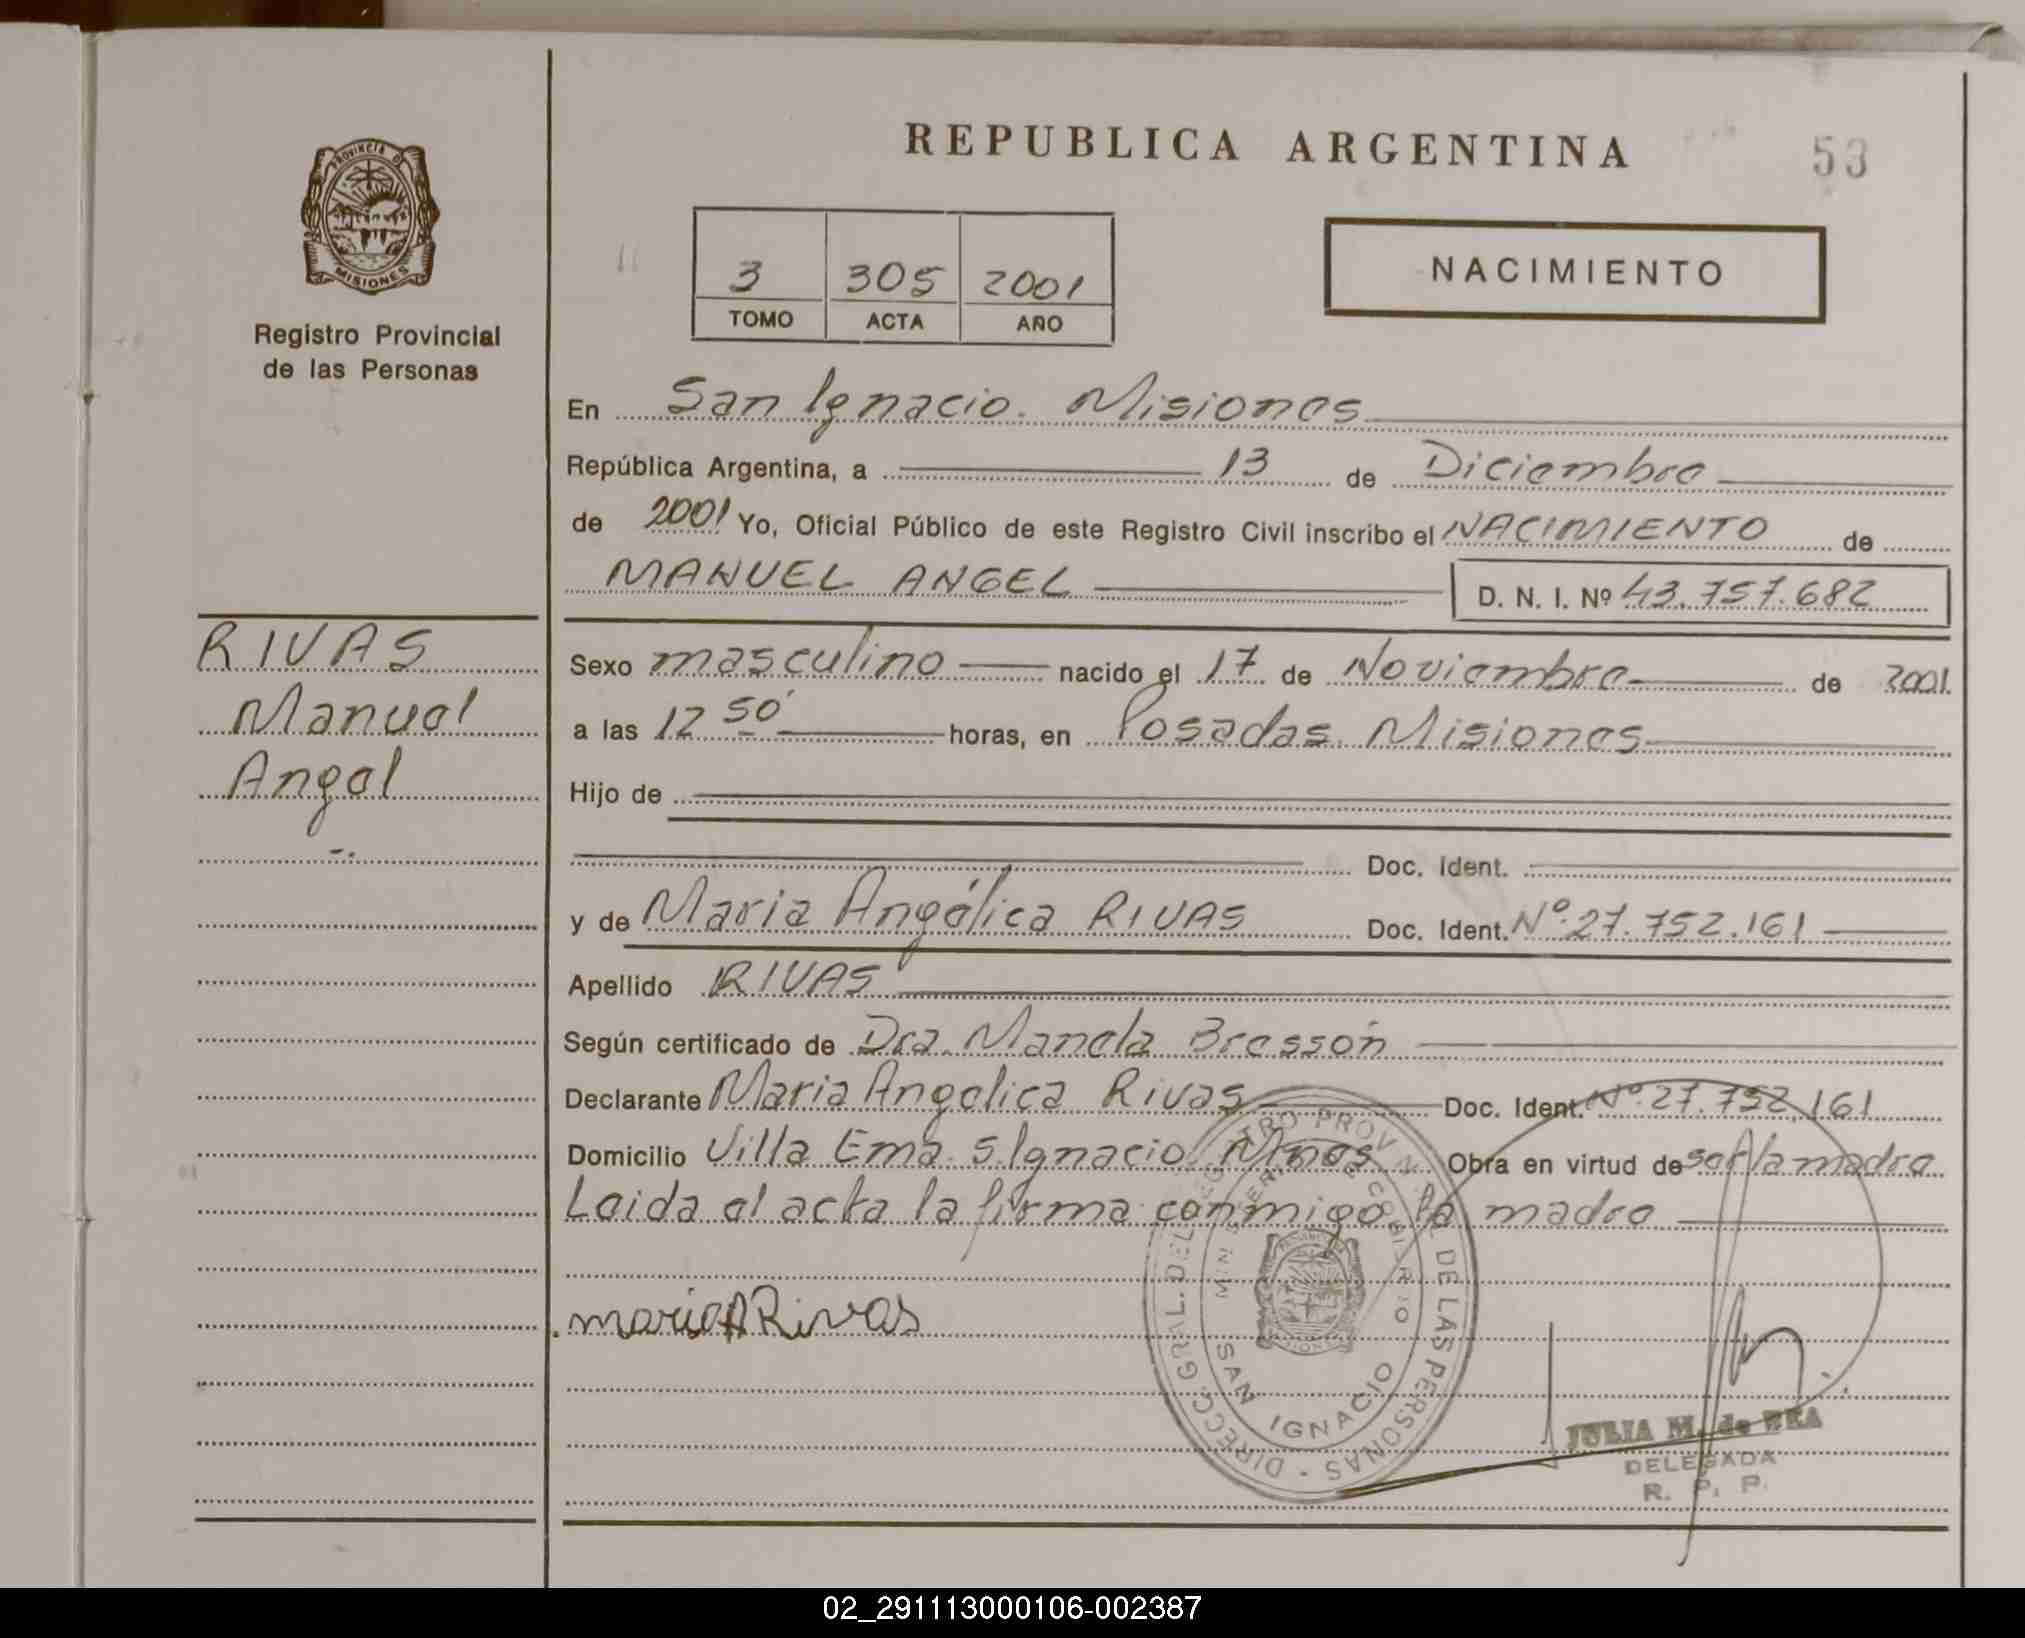 REPUBLICA ARGENTINA
53
PROVINCIA D
MISIONES
Registro Provincial
de las Personas
3 305 2001
TOMO ACTA AÑO
NACIMIENTO
En San Ignacio. Misiones
República Argentina, a 13 de Diciembre
de 2001 Yo, Oficial Público de este Registro Civil inscribo el NACIMIENTO de
MANUEL ANGEL D. N. I. Nº 43.757.682
RIVAS
Manuel
Angel
Sexo masculino nacido el 17 de Noviembre de 2001.
a las 12 50 horas, en Posadas. Misiones
Hijo de
Doc. Ident.
y de Maria Angélica RIVAS Doc. Ident. Nº 27.752.161
Apellido RIVAS
Según certificado de Dra. Manela Bressón
Declarante Maria Angelica Rivas Doc. Ident. Nº 27.752.161
Domicilio Villa Ema S. Ignacio Mnes Obra en virtud de ser la madre
Leida el acta la firma conmigo la madre
maria A Rivas
DIRECC. GRAL. DEL REGISTRO PROV DE LAS PERSONAS
SAN IGNACIO
JULIA M. de REA
DELEGADA
R. P. P.
02_291113000106-002387